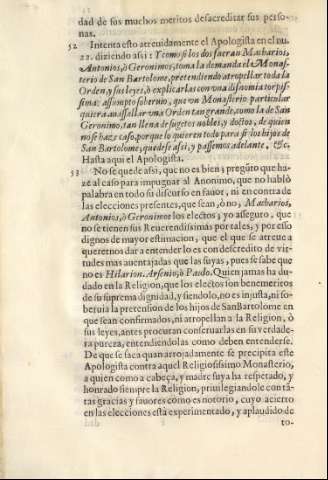 dad de sus muchos meritos desacreditar sus perso-
nas.
52 Intenta esto atreuidamente el Apologista en el nu.
22. diziendo assi: Y como si los dos fueran Macharios,
Antonios, ò Geronimos, toma la demanda el Monas-
terio de San Bartolome, pretendiendo atropellar toda la
Orden, y sus leyes, ò explicarlas con vna disonia torpis-
sima: assompto soberuio, que vn Monasterio particular
quiera auassellar vna Orden tan grande, como la de San
Geronimo, tan llena de sugetos nobles, y doctos, de quien
no se haze caso, porque lo quieren todo para si los hijos de
San Bartolome, quedese assi, y passemos adelante, &c.
Hasta aqui el Apologista.
53 No se quede assi, que no es bien; pregũto que ha-
ze al caso para impugnar al Anonimo, que no hablò
palabra en todo su discurso en fauor, ni en contra de
las elecciones presentes, que sean, ò no, Macharios,
Antonios, ò Geronimos los electos; yo asseguro, que
no se tienen sus Reuerendissimas por tales, y por esso
dignos de mayor estimacion, que el que se atreue a
querernos dar a entender lo es con descredito de vir-
tudes mas auentajadas que las suyas, pues se sabe que
no es Hilarion, Arsenio, ò Paulo. Quien jamas ha du-
dado en la Religion, que los electos son benemeritos
de su suprema dignidad, y siendolo, no es injusta, ni so-
beruia la pretension de los hijos de San Bartolome en
que sean confirmados, ni atropellan a la Religion, ò
sus leyes, antes procuran conseruarlas en su verdade-
ra pureza, entendiendolas como deben entenderse.
De que se saca quan arrojadamente se precipita este
Apologista contra aquel Religiosissimo Monasterio,
a quien como a cabeça, y madre suya ha respetado, y
honrado siempre la Religion, priuilegiandole con tã-
tas gracias y fauores como es notorio, cuyo acierto
en las elecciones està experimentado, y aplaudido de
to-